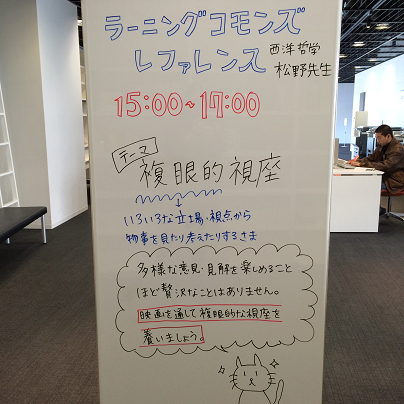 ラーニングコモンズ
レファレンス
西洋哲学
松野先生
15:00~17:00
テーマ
複眼的視座
いろいろな立場・視点から
物事を見たり考えたりするさま
多様な意見・見解を楽しめること
ほど贅沢なことはありません。
映画を通して複眼的な視座を
養いましょう。